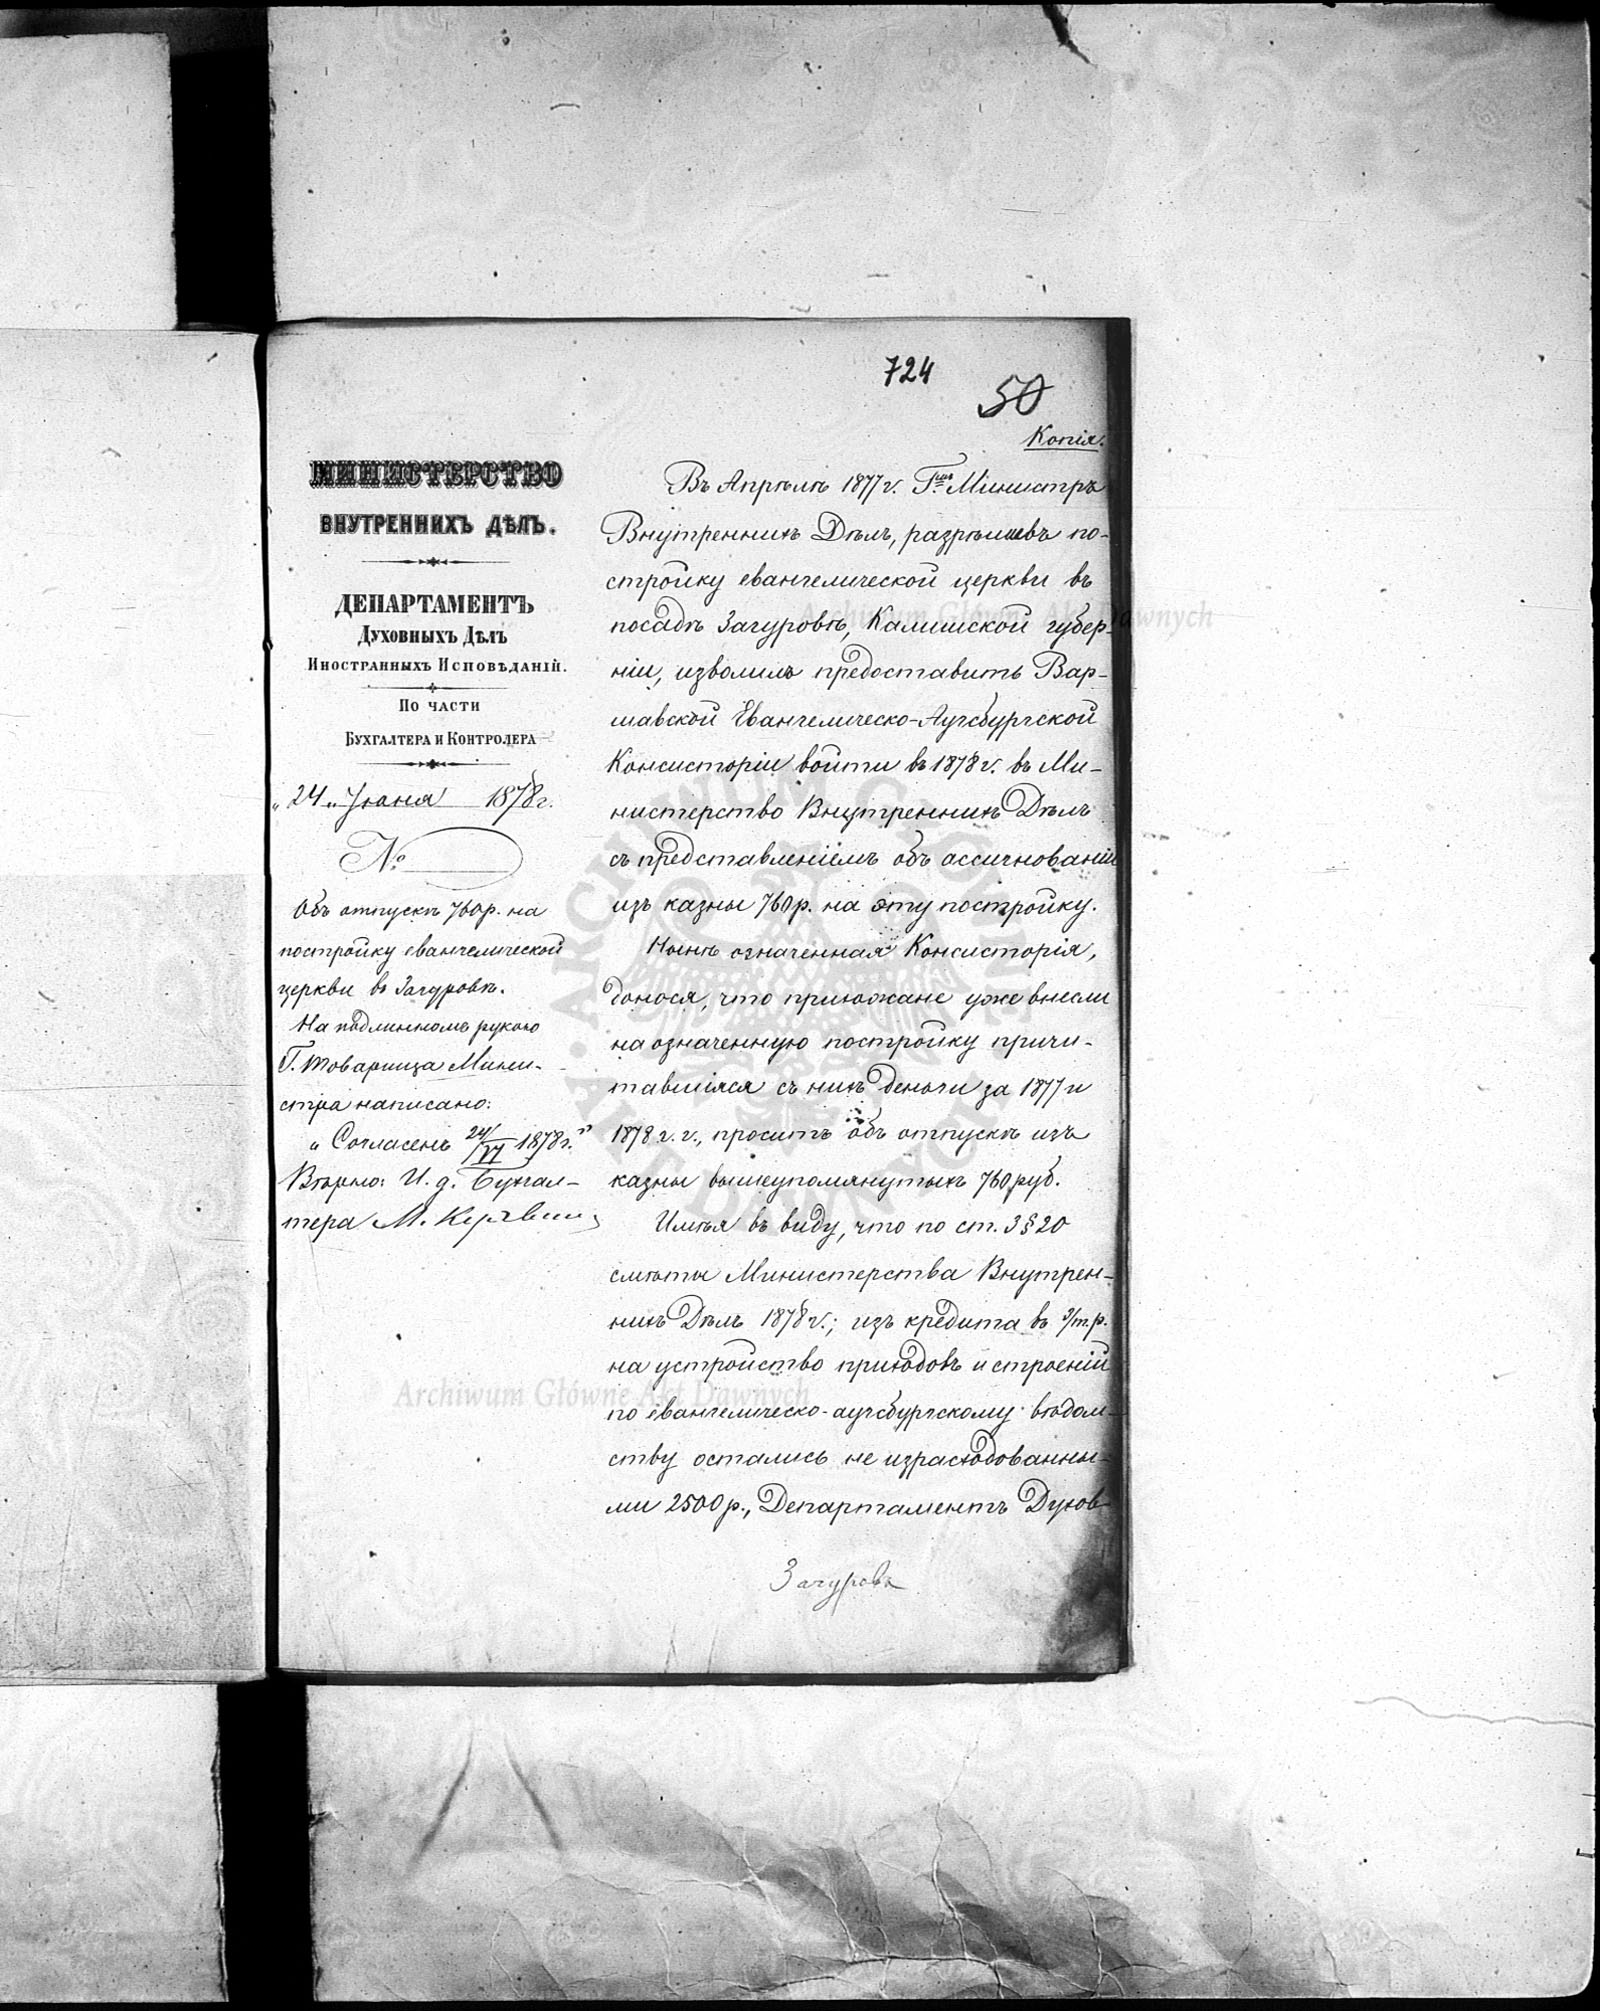 724
50
Копія.
МИНИСТЕРСТВО
ВНУТРЕННИХЪ ДѢЛЪ.
ДЕПАРТАМЕНТЪ
ДУХОВНЫХЪ ДѢЛЪ
ИНОСТРАННЫХЪ ИСПОВѢДАНІЙ.
ПО ЧАСТИ
БУХГАЛТЕРА И КОНТРОЛЕРА
„24„ Іюня 1878 г.
№
Объ отпускѣ 760 р. на
постройку евангелической
церкви въ Загуровѣ.
На подлинномъ рукою
Г. Товарища Мини-
стра написано:
„Согласенъ 24/VI 1878 г."
Вѣрно: И. д. Бухгал-
тера М.
Въ Апрѣлѣ 1877 г. Г-нъ Министръ
Внутреннихъ Дѣлъ, разрѣшивъ по-
стройку евангелической церкви въ
посадѣ Загуровѣ, Калишской губер-
ніи, изволилъ предоставить Вар-
шавской Евангелическо-Аугсбургской
Консисторіи войти въ 1878 г. въ Ми-
нистерство Внутреннихъ Дѣлъ
съ представленіемъ объ ассигнованіи
изъ казны 760 р. на эту постройку.
Нынѣ означенная Консисторія,
донося, что прихожане уже внесли
на означенную постройку причи-
тавшіяся съ нихъ деньги за 1877 и
1878 г. г., проситъ объ отпускѣ изъ
казны вышеупомянутыхъ 760 руб.
Имѣя въ виду, что по ст. 3 § 20
смѣты Министерства Внутрен-
нихъ Дѣлъ 1878 г.; изъ кредита въ 3/т.р.
на устройство приходовъ и строеній
по евангелическо-аугсбургскому вѣдом-
ству остались не израсходованны-
ми 2500 р., Департаментъ Духов-
Загуровъ
Archiwum Główne Akt Dawnych
Archiwum Główne Akt Dawnych
ARCHIWUM GŁÓWNE AKT DAWNYCH